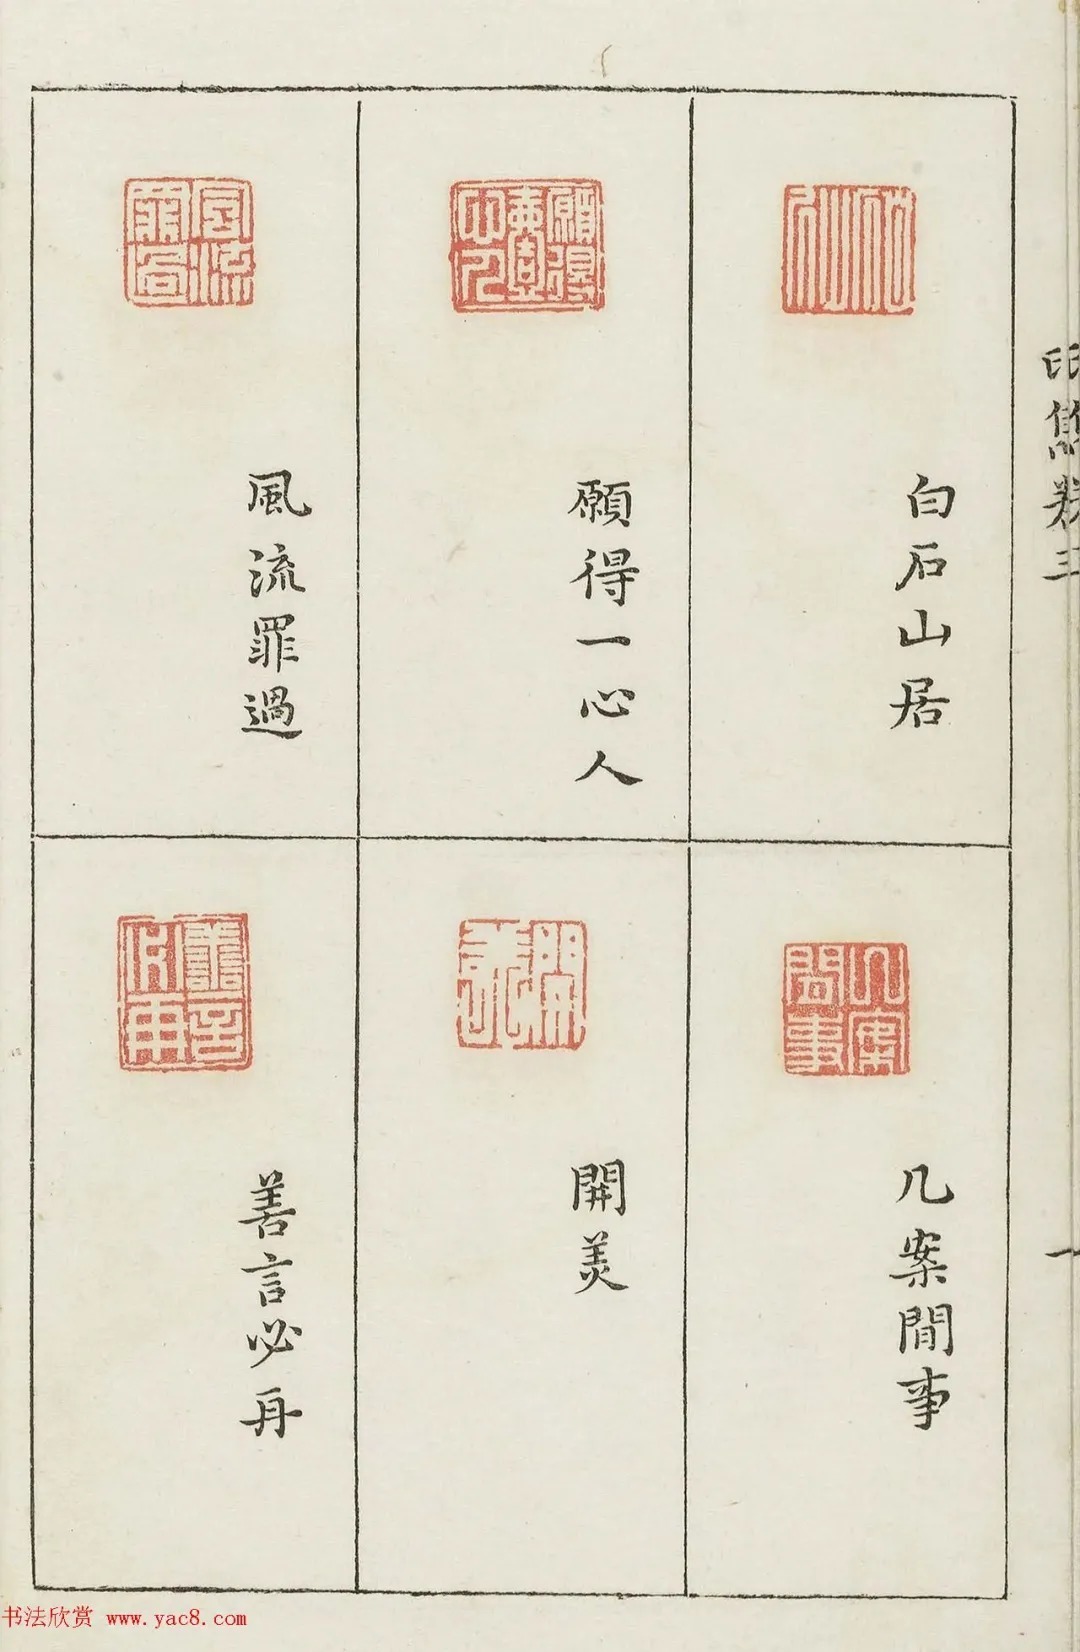 印雋卷三
白石山居
願得一心人
風流罪過
几案閒事
開美
善言必再
一
书法欣赏 www.yac8.com